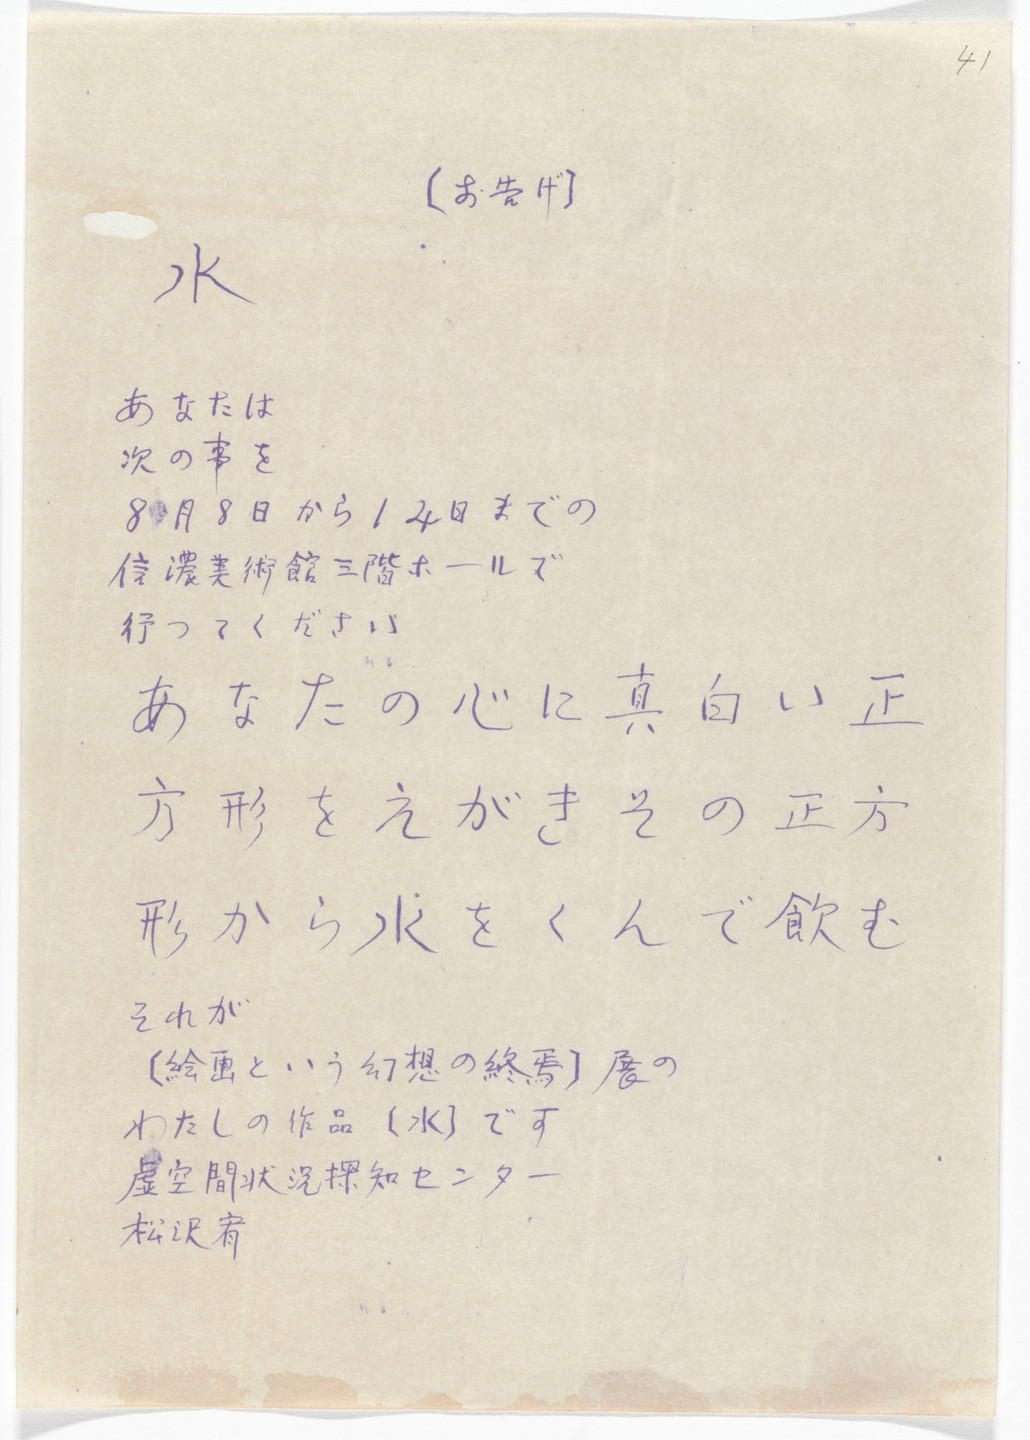 41
〔お告げ〕
水
あなたは
次の事を
8月8日から14日までの
信濃美術館三階ホールで
行つてください
あなたの心に真白い正
方形をえがきその正方
形から水をくんで飲む
それが
〔絵画という幻想の終焉〕展の
わたしの作品〔水〕です
虚空間状況探知センター
松沢宥